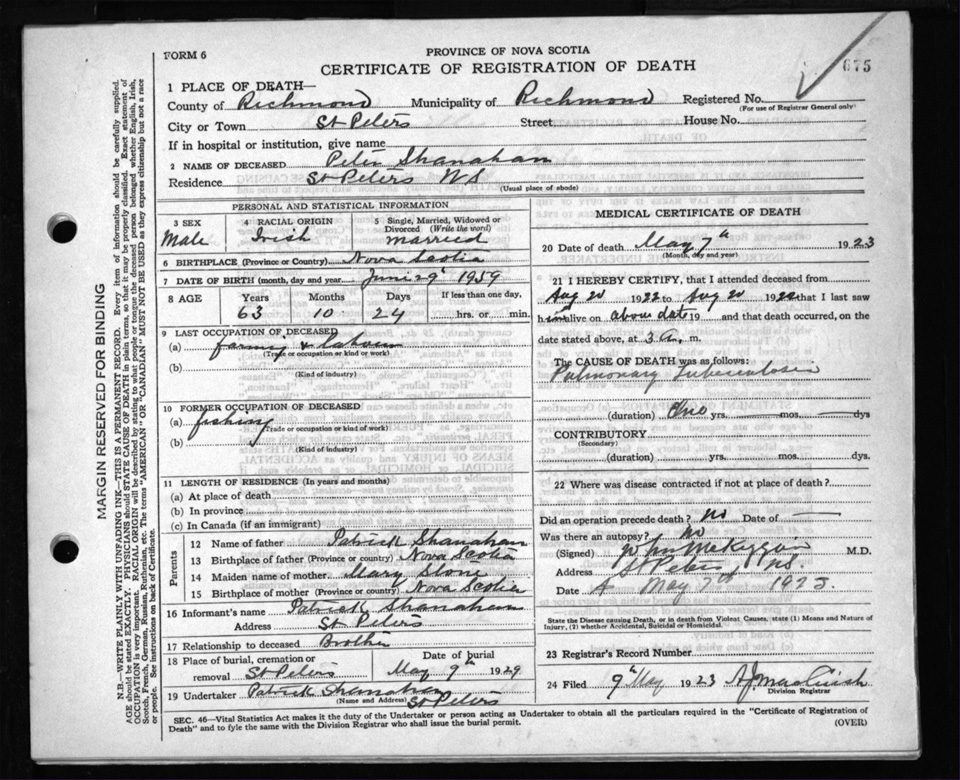 FORM 6
PROVINCE OF NOVA SCOTIA
CERTIFICATE OF REGISTRATION OF DEATH
675
1 PLACE OF DEATH—
County of Richmond Municipality of Richmond Registered No.
(For use of Registrar General only)
City or Town St Peters Street House No.
If in hospital or institution, give name
2 NAME OF DECEASED Peter Shanahan
Residence St Peters N S
(Usual place of abode)
PERSONAL AND STATISTICAL INFORMATION
3 SEX
Male
4 RACIAL ORIGIN
Irish
5 Single, Married, Widowed or Divorced (Write the word)
married
6 BIRTHPLACE (Province or Country) Nova Scotia
7 DATE OF BIRTH (month, day and year) June 29 1959
8 AGE Years Months Days If less than one day,
63 10 24 hrs. or min.
9 LAST OCCUPATION OF DECEASED
(a) farming &
(Trade or occupation or kind of work)
(b)
(Kind of industry)
10 FORMER OCCUPATION OF DECEASED
(a) fishing
(Trade or occupation or kind of work)
(b)
(Kind of industry)
11 LENGTH OF RESIDENCE (In years and months)
(a) At place of death
(b) In province
(c) In Canada (if an immigrant)
Parents
12 Name of father Patrick Shanahan
13 Birthplace of father (Province or country) Nova Scotia
14 Maiden name of mother Mary Stone
15 Birthplace of mother (Province or country) Nova Scotia
16 Informant's name Patrick Shanahan
Address St Peters
17 Relationship to deceased Brother
18 Place of burial, cremation or removal St Peters
Date of burial
May 9th 1929
19 Undertaker Patrick Shanahan
(Name and Address) St Peters
MEDICAL CERTIFICATE OF DEATH
20 Date of death May 7th 1923
(Month, day and year)
21 I HEREBY CERTIFY, that I attended deceased from
Aug 20 1922 to Aug 20 1922 that I last saw
h im alive on above date 19 and that death occurred, on
date stated above, at 3 a. m.
The CAUSE OF DEATH was as follows:
Pulmonary Tuberculosis
(duration) One yrs. mos. dys
CONTRIBUTORY
(Secondary)
(duration) yrs. mos. dys.
22 Where was disease contracted if not at place of death?
Did an operation precede death? no Date of
Was there an autopsy? No
(Signed) M.D.
Address St Peters, N.S.
Date May 7th 1923.
State the Disease causing Death, or in death from Violent Causes, state (1) Means and Nature of
Injury, (2) whether Accidental, Suicidal or Homicidal.
23 Registrar's Record Number
24 Filed 9th May 1923
Division Registrar
SEC. 46—Vital Statistics Act makes it the duty of the Undertaker or person acting as Undertaker to obtain all the particulars required in the "Certificate of Registration of
Death" and to fyle the same with the Division Registrar who shall issue the burial permit.
(OVER)
MARGIN RESERVED FOR BINDING
N.B.—WRITE PLAINLY WITH UNFADING INK—THIS IS A PERMANENT RECORD. Every item of information should be carefully supplied.
AGE should be stated EXACTLY. PHYSICIANS should STATE CAUSE OF DEATH in plain terms, so that it may be properly classified. Exact statement of
OCCUPATION is very important. RACIAL ORIGIN will be described by stating to what people or tongue the deceased person belonged whether English, Irish,
Scotch, French, German, Russian, Ruthenian, etc. The terms "AMERICAN" OR "CANADIAN" MUST NOT BE USED as they express citizenship but not a race
or people. See instructions on back of Certificate.